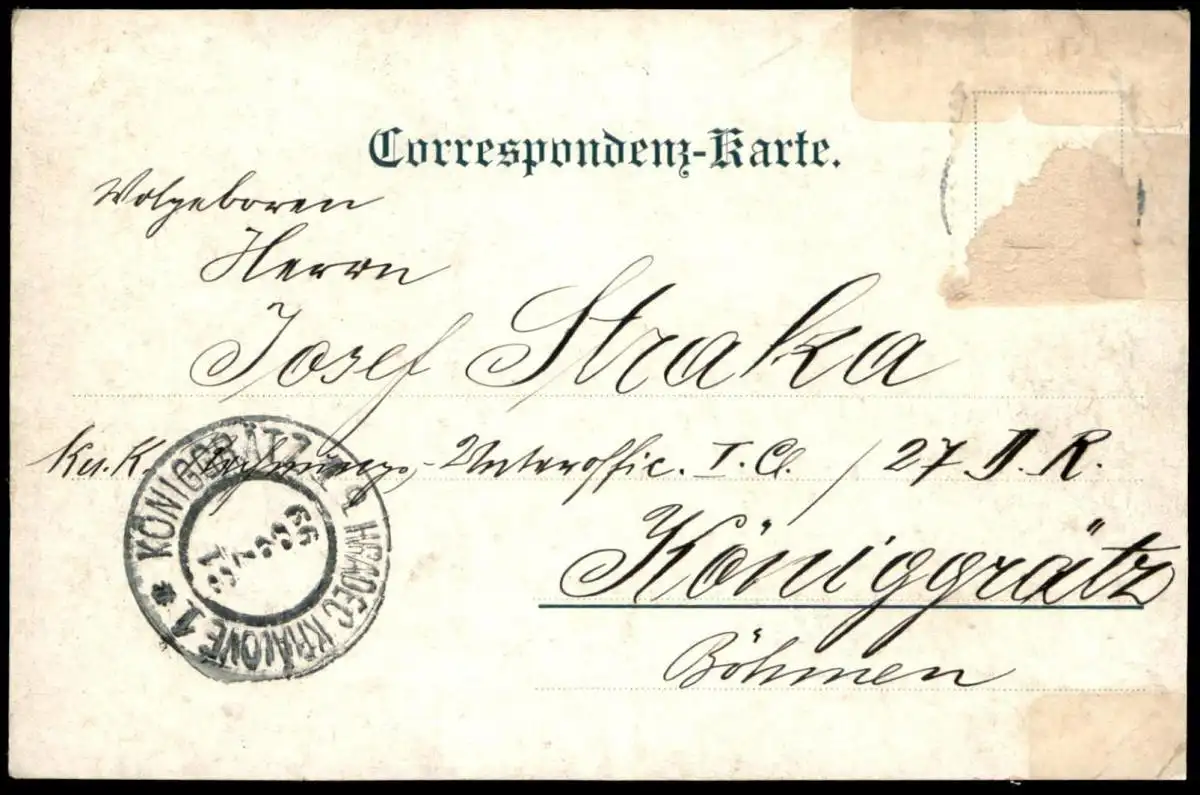 Correspondenz-Karte.
Wolgeboren
Herrn
Josef Straka
K.u.K. Rechnungs-Unteroffic. I. Cl. / 27 D. R.
Königgrätz
Böhmen
KÖNIGGRÄTZ 1 * HRADEC KRÁLOVÉ 1 *
99